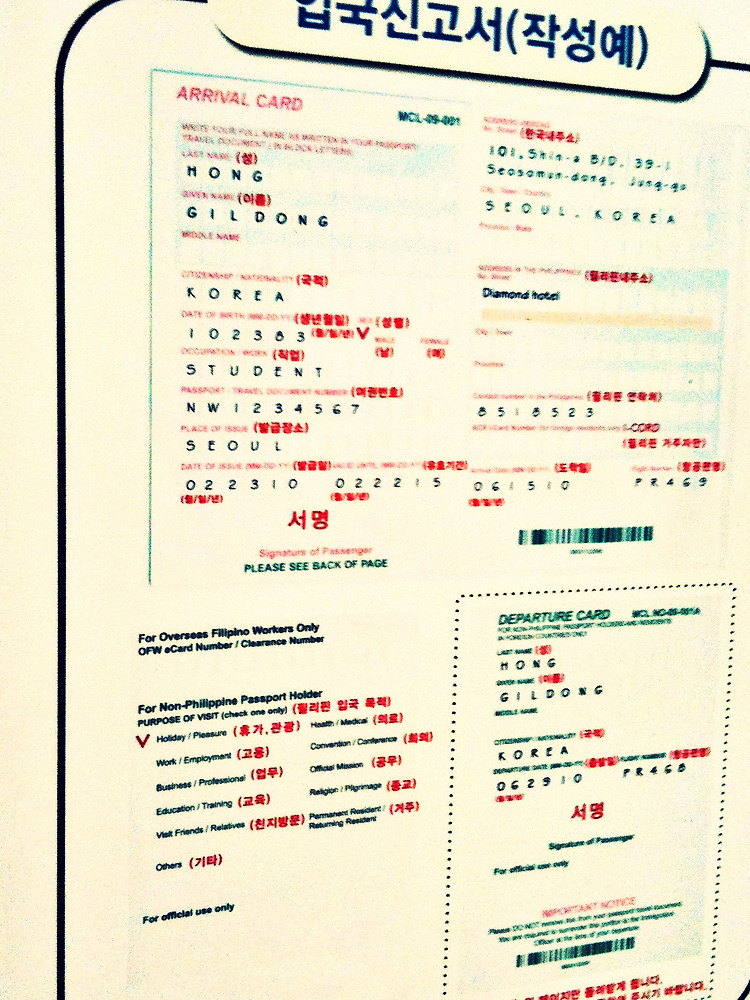 입국신고서(작성예)
ARRIVAL CARD
MCL-09-001
WRITE YOUR FULL NAME AS WRITTEN IN YOUR PASSPORT/
TRAVEL DOCUMENT ( IN BLOCK LETTERS)
LAST NAME (성)
HONG
GIVEN NAME (이름)
GILDONG
MIDDLE NAME
CITIZENSHIP / NATIONALITY (국적)
KOREA
DATE OF BIRTH (MM-DD-YY) (생년월일) SEX (성별)
102383 (월/일/년) V MALE FEMALE
(남) (여)
OCCUPATION / WORK (직업)
STUDENT
PASSPORT / TRAVEL DOCUMENT NUMBER (여권번호)
NW1234567
PLACE OF ISSUE (발급장소)
SEOUL
DATE OF ISSUE (MM-DD-YY) (발급일) VALID UNTIL (MM-DD-YY) (유효기간)
022310 022215
(월/일/년) (월/일/년)
서명
Signature of Passenger
PLEASE SEE BACK OF PAGE
ADDRESS ABROAD
No. Street (한국내주소)
101, Shin-a B/D. 39-1
Seosomun-dong, Jung-gu
City / Town / Country
SEOUL. KOREA
Province / State
ADDRESS IN THE PHILIPPINES (필리핀내주소)
No. Street
Diamond hotel
City / Town
Province
Contact number in the Philippines (필리핀 연락처)
8518523
I-CORD
(필리핀 거주자만)
Arrival Date (MM-DD-YY) (도착일) Flight Number (항공편명)
061510 PR469
(월/일/년)
For Overseas Filipino Workers Only
OFW eCard Number / Clearance Number
For Non-Philippine Passport Holder
PURPOSE OF VISIT (check one only) (필리핀 입국 목적)
V Holiday / Pleasure (휴가,관광) Health / Medical (의료)
Work / Employment (고용) Convention / Conference (회의)
Business / Professional (업무) Official Mission (공무)
Education / Training (교육) Religion / Pilgrimage (종교)
Visit Friends / Relatives (친지방문) Permanent Resident / Returning Resident (거주)
Others (기타)
For official use only
DEPARTURE CARD MCL NO-09-001A
FOR NON-PHILIPPINE PASSPORT HOLDERS AND RESIDENTS
IN FOREIGN COUNTRIES ONLY
LAST NAME (성)
HONG
GIVEN NAME (이름)
GILDONG
MIDDLE NAME
CITIZENSHIP / NATIONALITY (국적)
KOREA
DEPARTURE DATE (MM-DD-YY) (출발일) FLIGHT NUMBER (항공편명)
062910 PR468
(월/일/년)
서명
Signature of Passenger
For official use only
IMPORTANT NOTICE
Please DO NOT remove this from your passport/travel document.
You are required to surrender this portion to the Immigration
Officer at the time of your departure